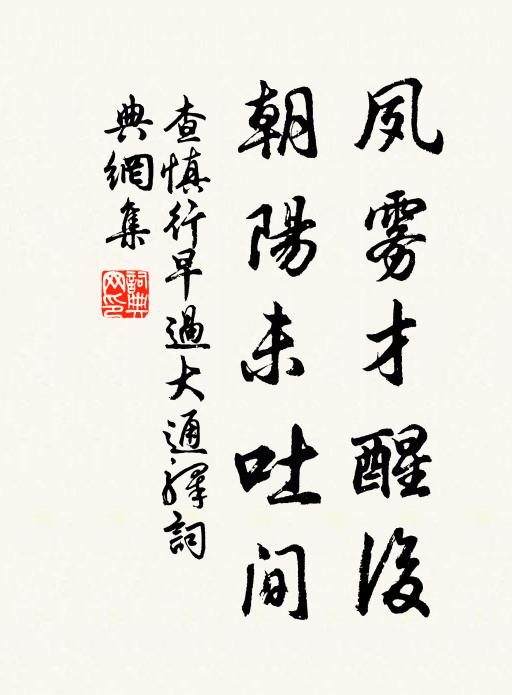 夙雾才醒後
朝陽未吐间
查慎行早過大通驛詞
典網集
詞典網印